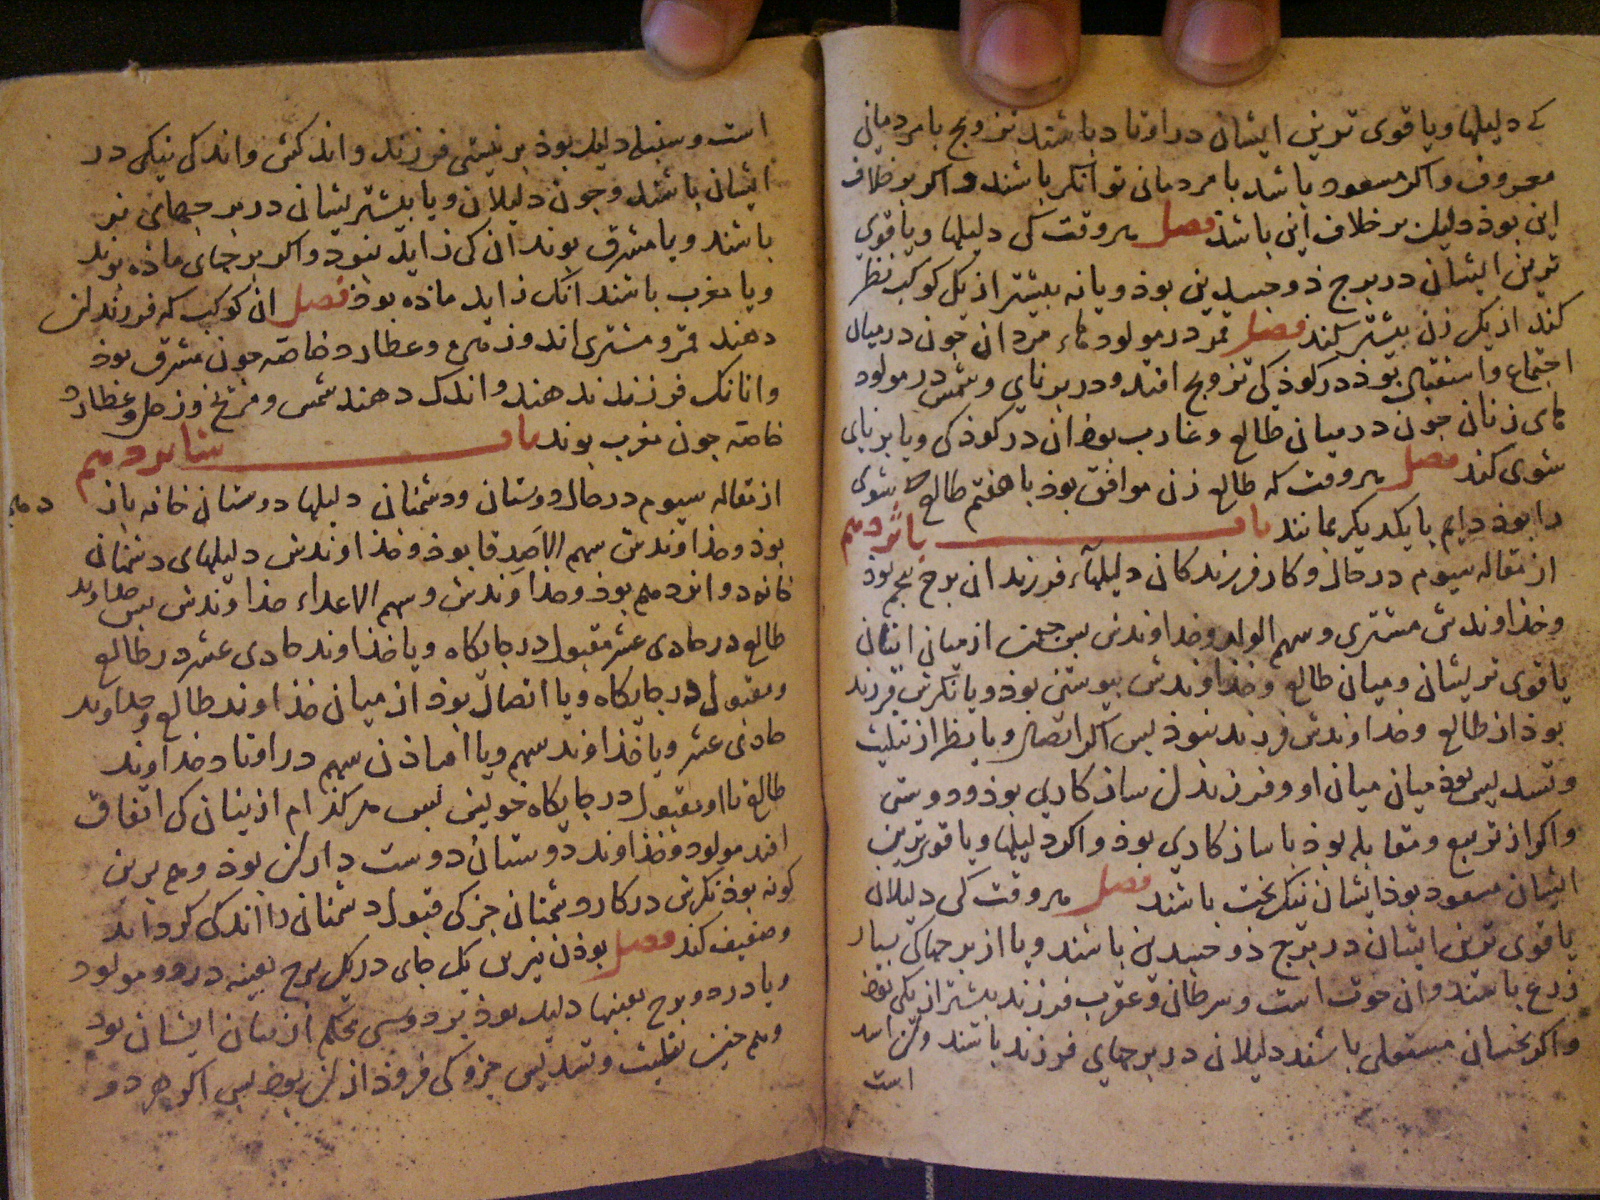 کی دلیلها ویا قوی ترین ایشان در اوتاد باشند تزویج با مردمانی
معروف واکر مسعود باشد با مردمانی توانکر باشند واکر بر خلاف
این بوذ دلیل بر خلاف این باشذ فصل هر وقت کی دلیلها ویا قوی
ترین ایشان در برج ذو جسدین بوذ ویا نه بیشتر از یک کوکب نظر
کند از یک زن بیشتر کند فصل قمر در مولود مردان جون در میان
اجتماع واستقبال بوذ در کوذکی تزویج افتد ودر برنایی وشمس در مولود
زنان جون در میان طالع وغارب بوذ ان در کوذکی ویا برنایی
شوی کند فصل هر وقت که طالع زن موافق بوذ با هفتم طالع شوی
دایم با یکدیکر بمانند باب پانزدهم
از مقاله سیوم در حال وکار فرزندکان دلیلهاء فرزندان برج پنجم بوذ
وخذاوندش مشتری وسهم الولد وخداوندش بس از میان ایشان
یا قوی تریشان ومیان طالع وخذاوندش پیوستن بوذ ویا نکرش فرزند
بوذ از طالع وخداوندش فرزند نبوذ بس اکر اتصال ویا نظر از تثلیث
وتسدیس بوذ میان میان او وفرزندان سازکاری بوذ ودوستی
واکر از تربیع ومقابله بوذ ناسازکاری بوذ واکر دلیلها ویا قوی ترین
ایشان مسعود بوذ ایشان نیکبخت باشند فصل هر وقت کی دلیلان
یا قوی ترین ایشان در برج ذو جسدین باشند ویا از برجهای بسیار
زرع باشند وان حوت است وسرطان وعقرب فرزند بیشتر از یکی بوذ
واکر نحسان مستعلی باشند دلیلان در برجهای فرزند باشند وان اسد
است
است وسنبله دلیل بوذ بر نیستی فرزند واندکش واندکی نیکی در
ایشان باشند وجون دلیلان ویا بیشتریشان در برجهای نر
باشند ویا مشرق بوند ان کی زاید نر بود واکر برجهای ماذه بوند
ویا مغرب باشند انک زاید ماذه بوذ فصل ان کوکب که فرزندان
دهند قمر ومشتری اند وزهره وعطارد خاصه جون مشرق بوذ
وانانک فرزند ندهند واندک دهند شمس ومریخ وزحل وعطارد
خاصه جون مغرب بوند باب شانزدهم
از مقاله سیوم در حال دوستان ودشمنان دلیلها دوستان خانه یاز
دهم
بوذ وخذاوندش سهم الاصدقا بوذ وخذاوندش دلیلهای دشمنان
خانه دوانزدهم بوذ وخداوندش وسهم الاعداء خذاوندش بس خداوند
طالع در حادی عشر مقبول در جایکاه ویا خذاوند حادی عشر در طالع
ومقبول در جایکاه ویا اتصال بوذ از میان خذاوند طالع وخداوند
حادی عشر ویا خذاوند سهم ویا افتاذن سهم در اوتاد خداوند
طالع با او مقبول در جایکاه خویش بس هر کذام از ینان کی اتفاق
افتد مولود وخذاوند دوستان دوست دار بوذ وهم برین
کونه بوذ نکرش در کار دشمنان جز کی قبول دشمنان را اندکی کرداند
وضعیف کند فصل بوذن نیرین یک جای در یک برج بعینه در دو مولود
ویا در دو برج بعینها دلیل بوذ بر دوستی محکم از میان ایشان بود
وهم جنین تثلیث وتسدیس جزو کی فروذ از بوذ بس اکر هر دو